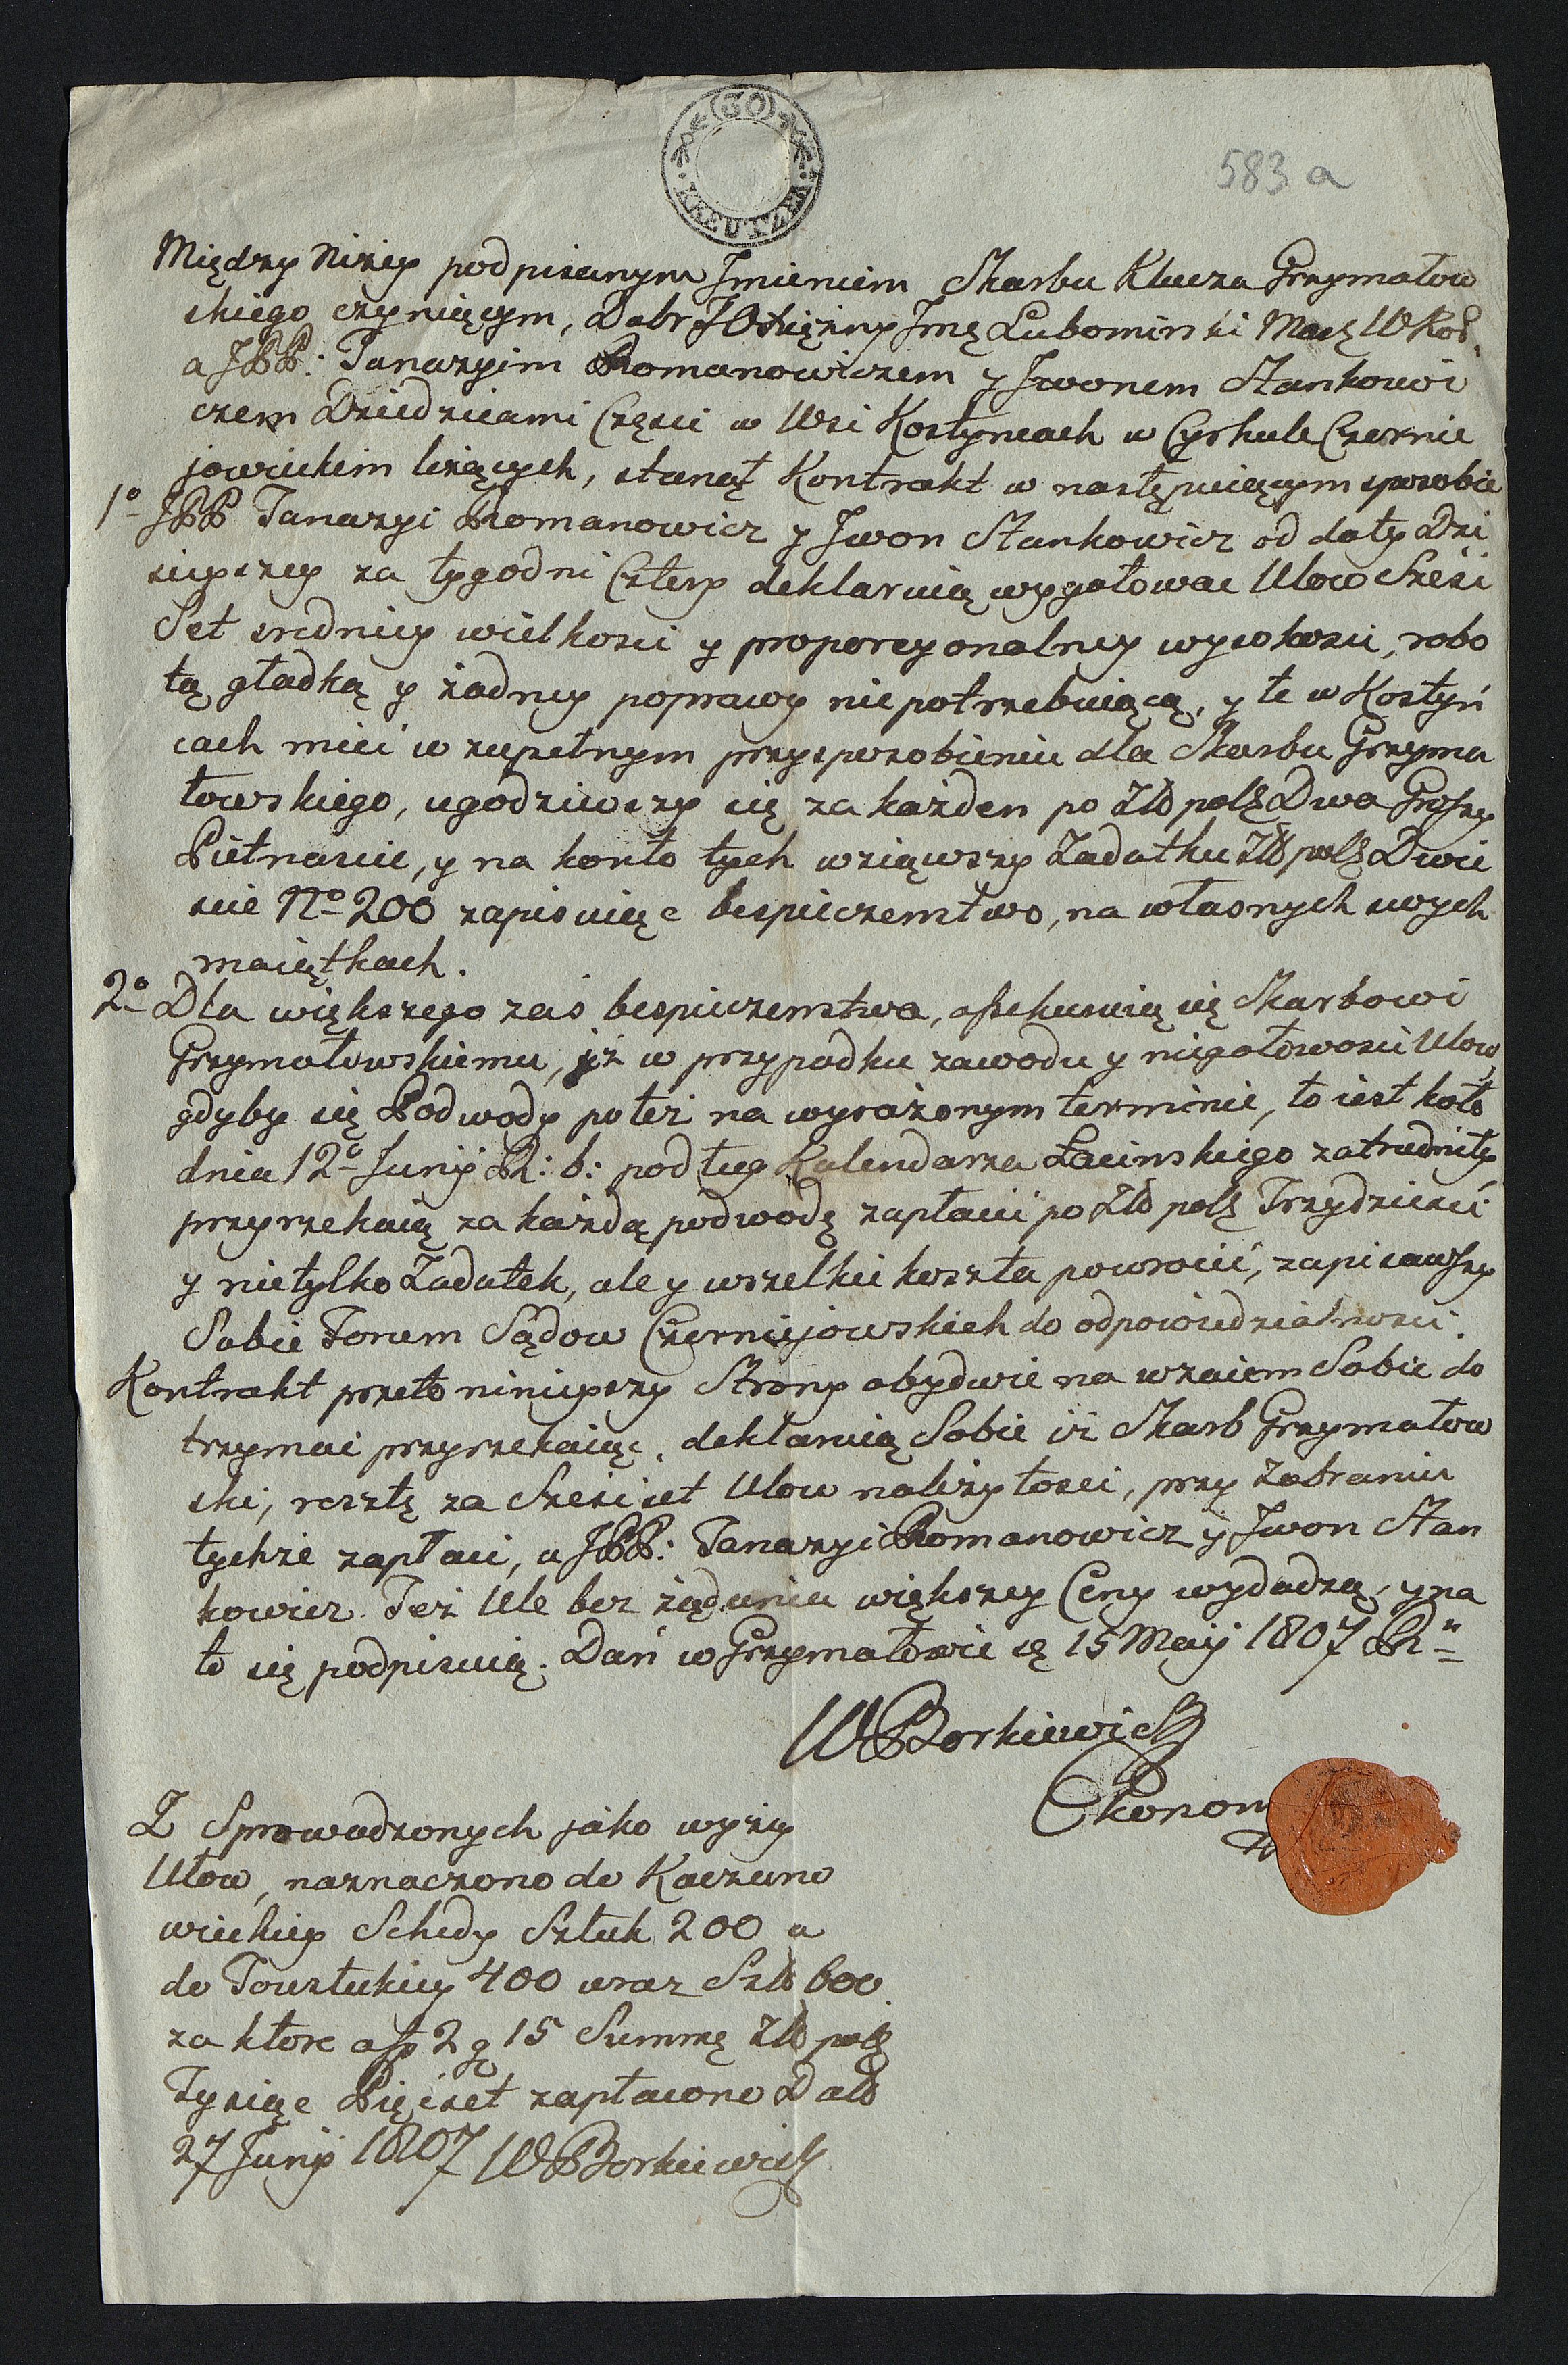 30
KREUTZER
583 a
Między Niżey podpisanym Jmieniem Skarbu Klucza Grzymałow
skiego czyniącym, Dobr JO Xiężny Jmę Lubomirski
a JPP: Tanazyim Romanowiczem y Jwonem Stankowi
czem Dziedzicami Częsci w Wsi Kostyncach w Cyrkule Czernie
jowieckim leżących, stanął Kontrakt w następuiącym sposobie
1º JPP Tanazyi Romanowicz y Jwon Stankowicz od daty Dzi
sieyszey za tygodni Cztery deklaruią wygotowac Ulow Sześć
Set sredniey wielkosci y proporcyonalney wysokosci, robo
tą gładką y żadney poprawy niepotrzebuiącą, y te w Kostyń
cach mieć w zupełnym przysposobieniu dla Skarbu Grzyma
łowskiego, ugodziwszy się za każden po Złł polſ Dwa Groszy
Pietnascie, y na konto tych wziąwszy Zadatku Złł polſ Dwie
scie Nº 200 zapisuiąc bespieczenstwo, na własnych swych
maiątkach.
2º Dla większego zaś bespieczenstwa, assekuruią się Skarbowi
Grzymałowskiemu, iż w przypadku zawodu y niegotowosci Ulow,
gdyby się Podwody po też na wyrażonym terminie, to iest koło
dnia 12º Junij R: b: podług Kalendarza Łacinskiego zatrudniły
przyrzekaią za każdą podwodę zapłacić po Złł polſ Trzydzieści
y nietylko Zadatek, ale y wszelkie koszta powrocić, zapisawszy
Sobie Forum Sądow Czerniejowskich do odpowiedzialnosci.
Kontrakt przeto ninieyszy Strony obydwie na wzaiem Sobie do
trzymac przyrzekaiąc, deklaruią Sobie iż Skarb Grzymałow
ski, resztę za Sześć set Ulow należytosci, przy Zabraniu
tychże zapłaci, a JPP: Tanazyi Romanowicz y Jwon Stan
kowicz. Też Ule bez żądania większey Ceny wydadzą, y na
to się podpisuią. Dań w Grzymałowie 15 Maij 1807 R"
W Borkiewicz
Ekonom
Z Sprowadzonych jako wyzey
Ulow, naznaczono do Kaczano
wieckiey Schedy Sztuk 200 a
do Toustuckiey 400 wraz Szł 600
za ktore a fp 2 g 15 Summę Złł polſ
Tysiąc Pięćset zapłacono Datt
27 Junij 1807 W Borkiewicz